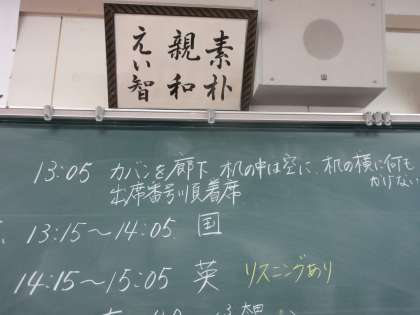 素朴
親和
えい智
13:05 カバンを廊下 机の中は空に、机の横に何も
かけない
出席番号順着席
13:15〜14:05 国
14:15〜15:05 英 リスニングあり